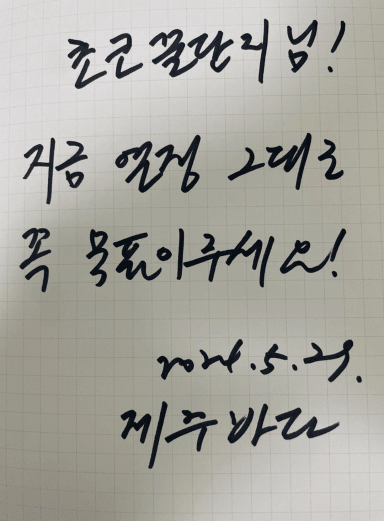 초코꿀단지님!
지금 열정 그대로
꼭 목표이루세요!
2024.5.29.
제주바다